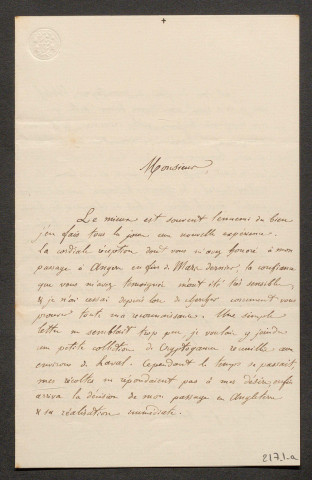 Monsieur,
Le mieux est souvent l'ennemi du bien
j'en fais tous les jours une nouvelle expérience.
La cordiale réception dont vous m'avez honoré à mon
passage à Angers en fin de Mars dernier, la confiance
que vous m'avez témoignée m'ont été très sensible
& je n'ai cessé depuis lors de chercher comment vous
prouver toute ma reconnaissance. Une simple
lettre me semblait trop peu, je voulais y joindre
une petite collection de Cryptogames recueillis aux
environs de Laval. Cependant le temps se passait
mes récoltes ne répondaient pas à mes désirs, enfin
arriva la décision de mon passage en Angleterre
& sa réalisation immédiate.
217.1-a